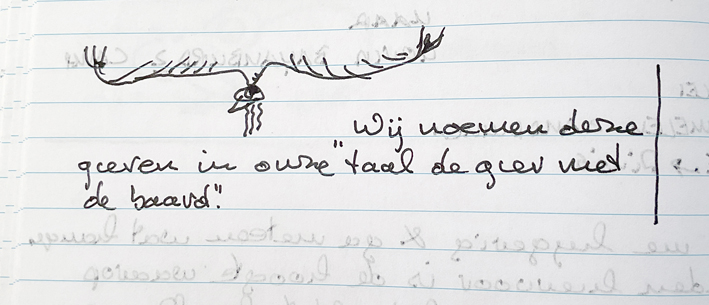 Wij noemen deze
gieren in onze "taal de gier met
de baard".